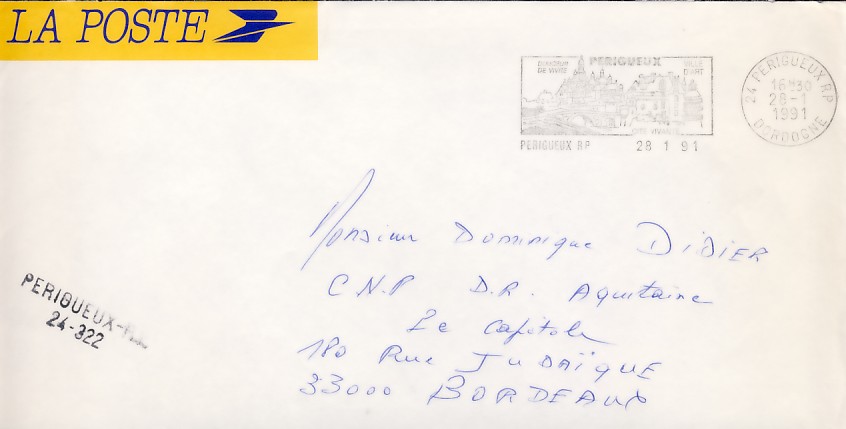 LA POSTE
PERIGUEUX
VILLE
D'ART
DE VIVRE
PERIGUEUX RP 28 1 91
24 PERIGUEUX RP
16H30
28-1
1991
DORDOGNE
Monsieur Dominique DIDIER
C.N.P D.R. Aquitaine
Le Capitole
180 Rue JUDAÏQUE
33000 BORDEAUX
PERIGUEUX-R.P.
24-322